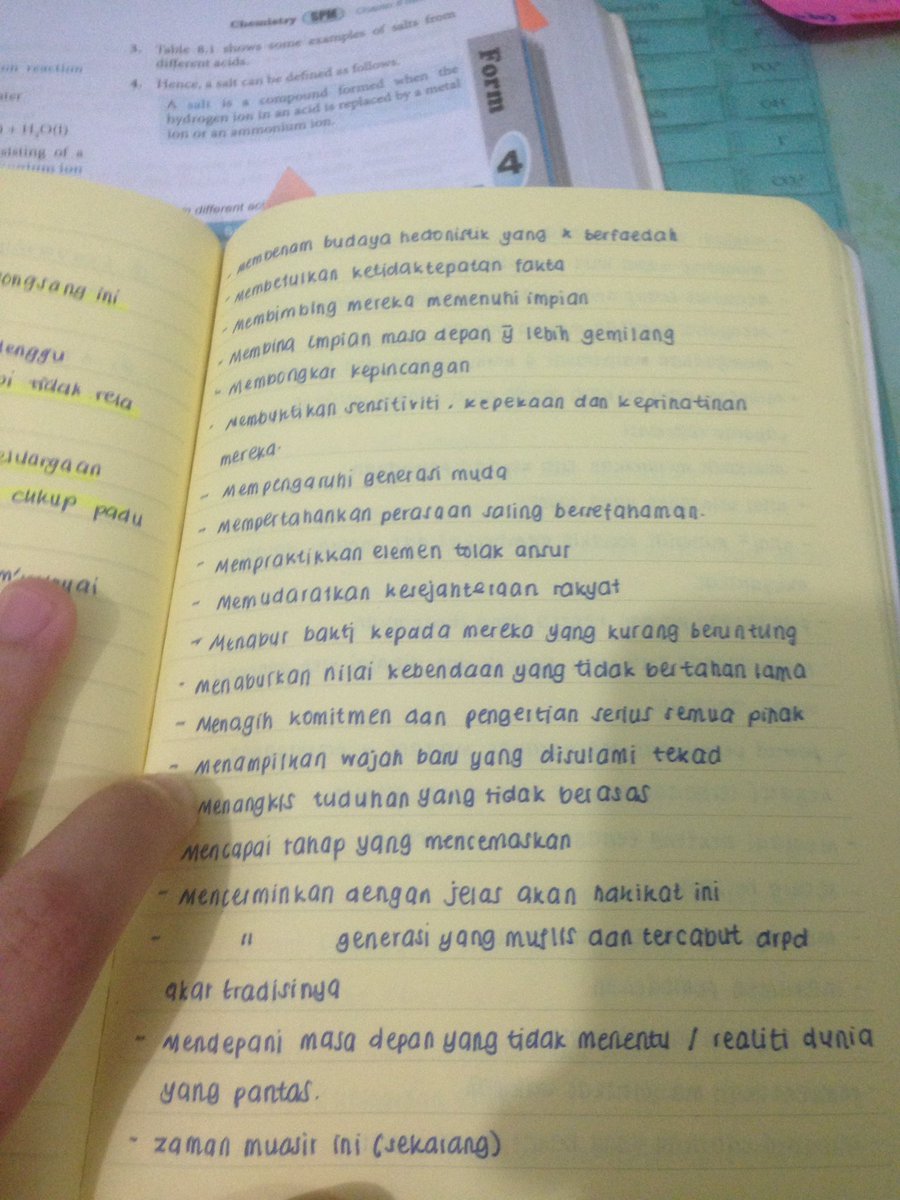 Chemistry SPM
3. Table 6.1 shows some examples of salts from
different acids.
4. Hence, a salt can be defined as follows.
A salt is a compound formed when the
hydrogen ion in an acid is replaced by a metal
ion or an ammonium ion.
Form
4
on reaction
) + H₂O(l)
sisting of a
different
ongsang ini
tidak rela
cukup padu
- Membenam budaya hedonistik yang x berfaedah
- Membetulkan ketidaktepatan fakta
- Membimbing mereka memenuhi impian
- Membina impian masa depan yg lebih gemilang
- Membongkar kepincangan
- Membuktikan sensitiviti, kepekaan dan keprihatinan
mereka.
- Mempengaruhi generasi muda
- Mempertahankan perasaan saling bersefahaman.
- Mempraktikkan elemen tolak ansur
- Memudaratkan kesejahteraan rakyat
- Menabur bakti kepada mereka yang kurang beruntung
- Menaburkan nilai kebendaan yang tidak bertahan lama
- Menagih komitmen dan pengertian serius semua pihak
- Menampilkan wajah baru yang disulami tekad
Menangkis tuduhan yang tidak berasas
Mencapai tahap yang mencemaskan
- Mencerminkan dengan jelas akan hakikat ini
- " generasi yang muflis dan tercabut drpd
akar tradisinya
- Mendepani masa depan yang tidak menentu / realiti dunia
yang pantas.
- zaman muasir ini (sekarang)